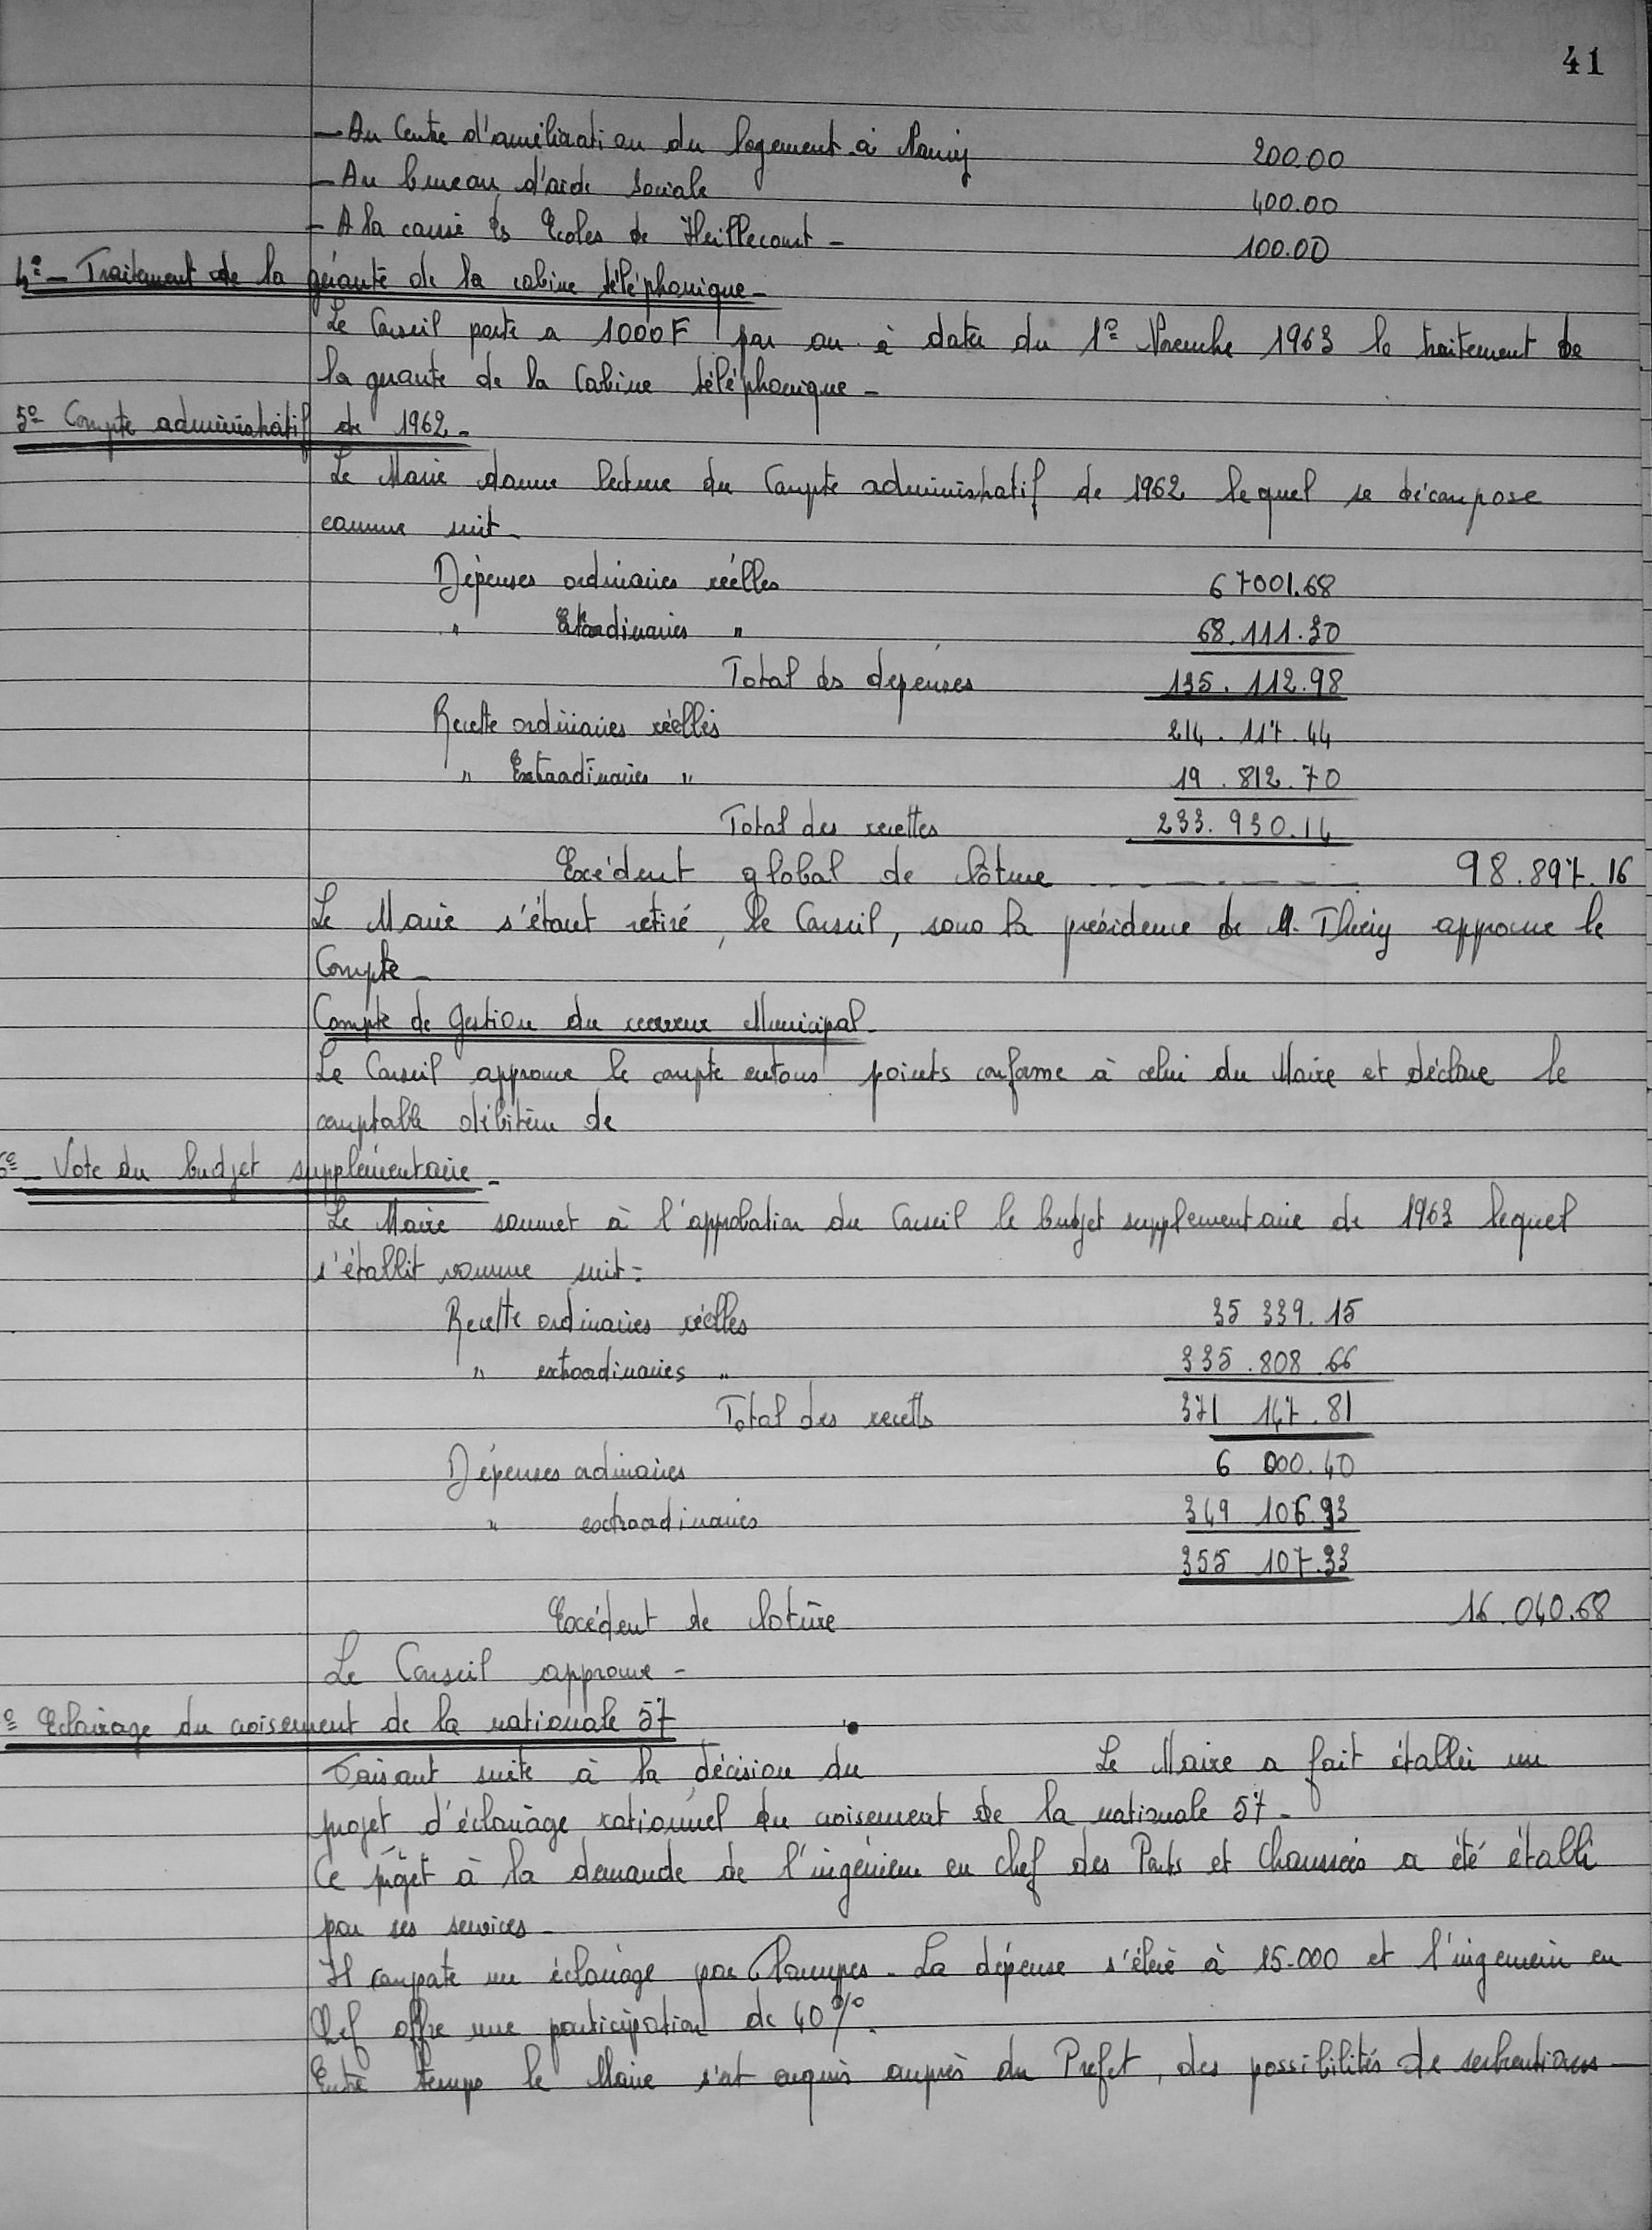 41
- Au Centre d'amélioration du logement à Nancy 200.00
- Au bureau d'aide sociale 400.00
- A la caisse des Ecoles de Heillecourt - 100.00
4° - Traitement de la gérante de la cabine téléphonique -
Le Conseil porte a 1000F par an à dater du 1er Novembre 1963 le traitement de
la gerante de la Cabine téléphonique -
5° Compte administratif de 1962 -
Le Maire donne lecture du Compte administratif de 1962 lequel se décompose
comme suit -
Dépenses ordinaires réelles 67001.68
" Extraordinaires " 68.111.30
Total des depenses 135.112.98
Recette ordinaires réelles 214.117.44
" Extraordinaires " 19.812.70
Total des recettes 233.930.14
Excédent global de clôture 98.897.16
Le Maire s'étant retiré, le Conseil, sous la présidence de M. Thiéry approuve le
Compte -
Compte de Gestion du receveur Municipal -
Le Conseil approuve le compte entous points conforme à celui du Maire et déclare le
comptable débiteur de
6° - Vote du budget supplémentaire -
Le Maire soumet à l'approbation du Conseil le budget supplementaire de 1963 lequel
s'établit comme suit :
Recette ordinaires réelles 35 339.15
" extraordinaires " 335.808.66
Total des recettes 371 147.81
Dépenses ordinaires 6 000.40
" extraordinaires 349 106.93
355 107.33
Excédent de cloture 16.040.68
Le Conseil approuve -
° Eclairage du croisement de la nationale 57
Faisant suite à la décision du Le Maire a fait établir un
projet d'éclairage rationnel du croisement de la nationale 57 -
Ce projet à la demande de l'ingénieur en chef des Ponts et Chaussées a été établi
par ses services -
Il comporte un éclairage par lampes - La dépense s'élève à 15.000 et l'ingenieur en
Chef offre une participation de 40%.
Entre temps le Maire s'est acquis auprès du Prefet, des possibilités de subventions